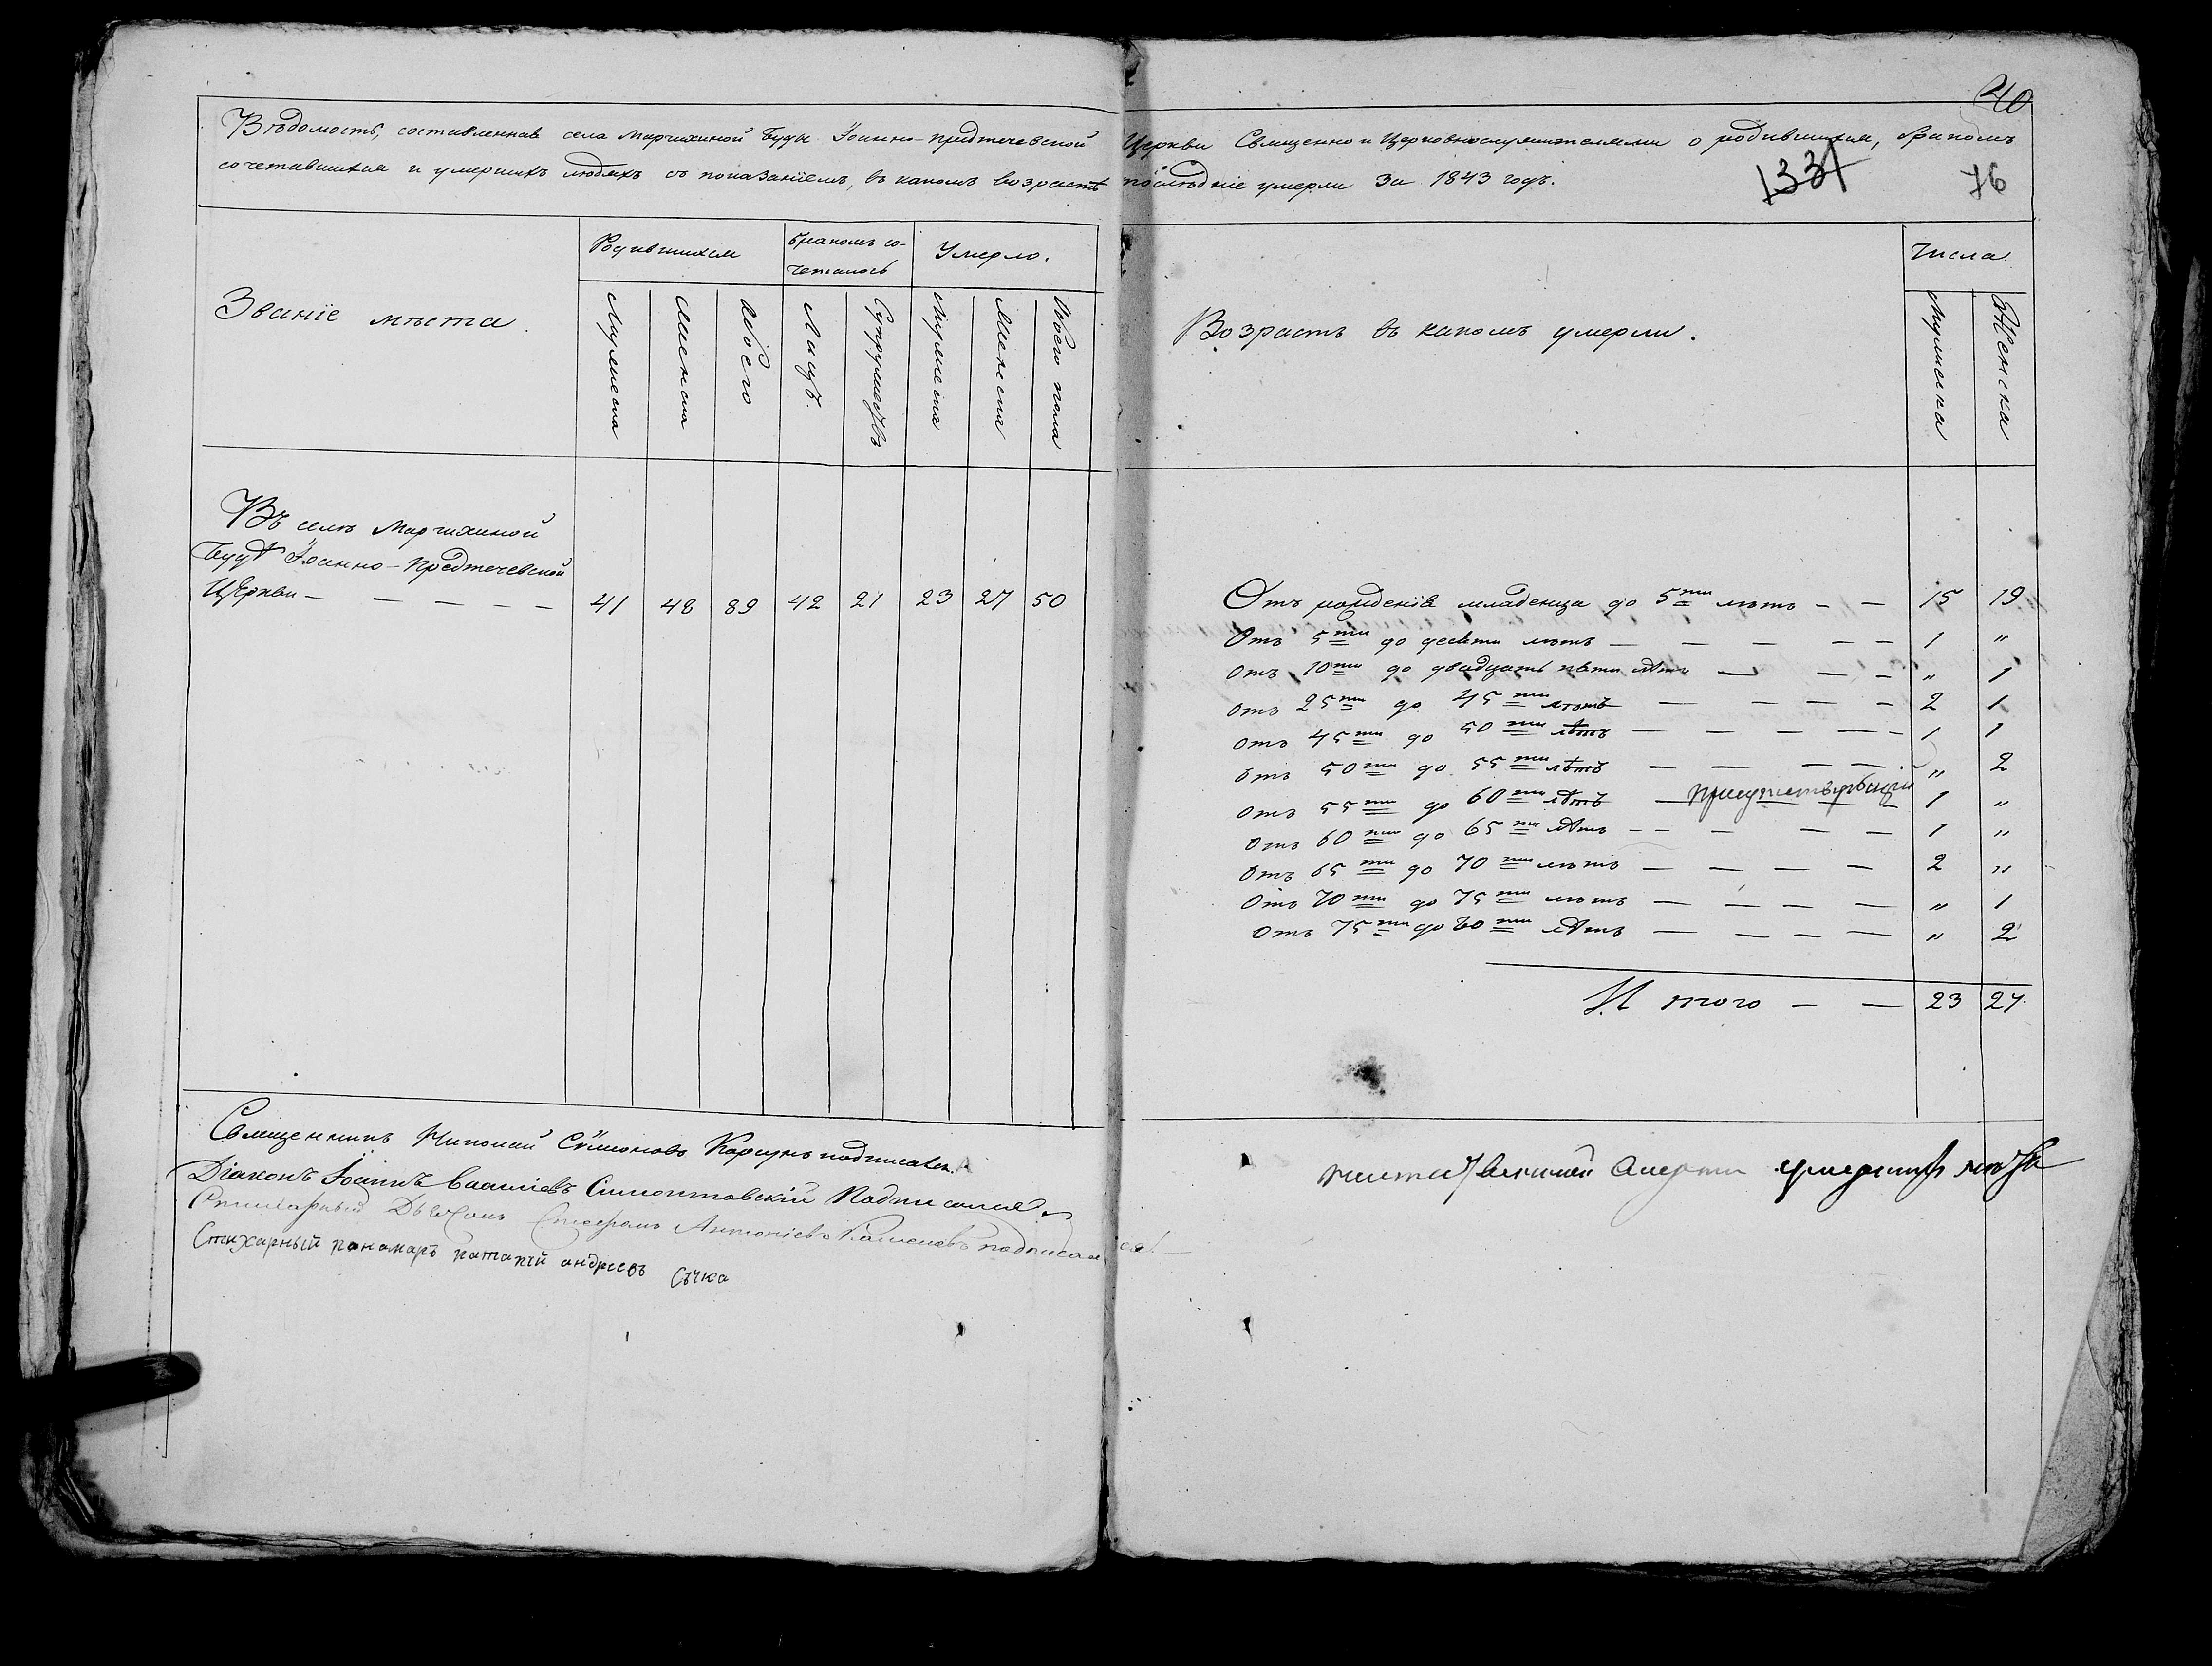 40
Вѣдомость, составленная села Марчихиной Буды Іоанно-Предтечевской Церкви Священно и Церковнослужителями о родившихся, бракомъ
сочетавшихся и умершихъ людяхъ съ показаніемъ, въ какомъ возрастѣ послѣдніе умерли за 1843 годъ.
1331
76
Званіе мѣста.
Родившихся
Бракомъ со-
четалось
Умерло.
Мужеска
Женска
Обоего
Лицъ.
Супружествъ
Мужеска
Женска
Обоего пола
Возрастъ въ какомъ умерли.
Числа
Мужеска
Женска
Въ селѣ Марчихиной
Будѣ Іоанно-Предтечевской
Церкви — — — — — 41 48 89 42 21 23 27 50
Отъ рожденія младенца до 5ти лѣтъ — — 15 19
Отъ 5ти до десяти лѣтъ — — — — — 1 "
Отъ 10ти до двадцати пяти лѣтъ — — — " 1
Отъ 25ти до 45ти лѣтъ — — — — 2 1
Отъ 45ти до 50ти лѣтъ — — — — — 1 1
Отъ 50ти до 55ти лѣтъ — — — — " 2
Отъ 55ти до 60ти лѣтъ — 1 "
Отъ 60ти до 65ти лѣтъ — — — — — 1 "
Отъ 65ти до 70ти лѣтъ — — — — 2 "
Отъ 70ти до 75ти лѣтъ — — — — " 1
Отъ 75ти до 80ти лѣтъ — — — — " 2
И того — — 23 27
Священникъ Николай Сѵмоновъ Корсунъ подписался.
Діаконъ Іоаннъ Симонтовскій Подписался
Стихарный Дьячокъ Стефанъ Антоніевъ подписался.
Стихарный пономаръ патапій андреевъ Сѣчка